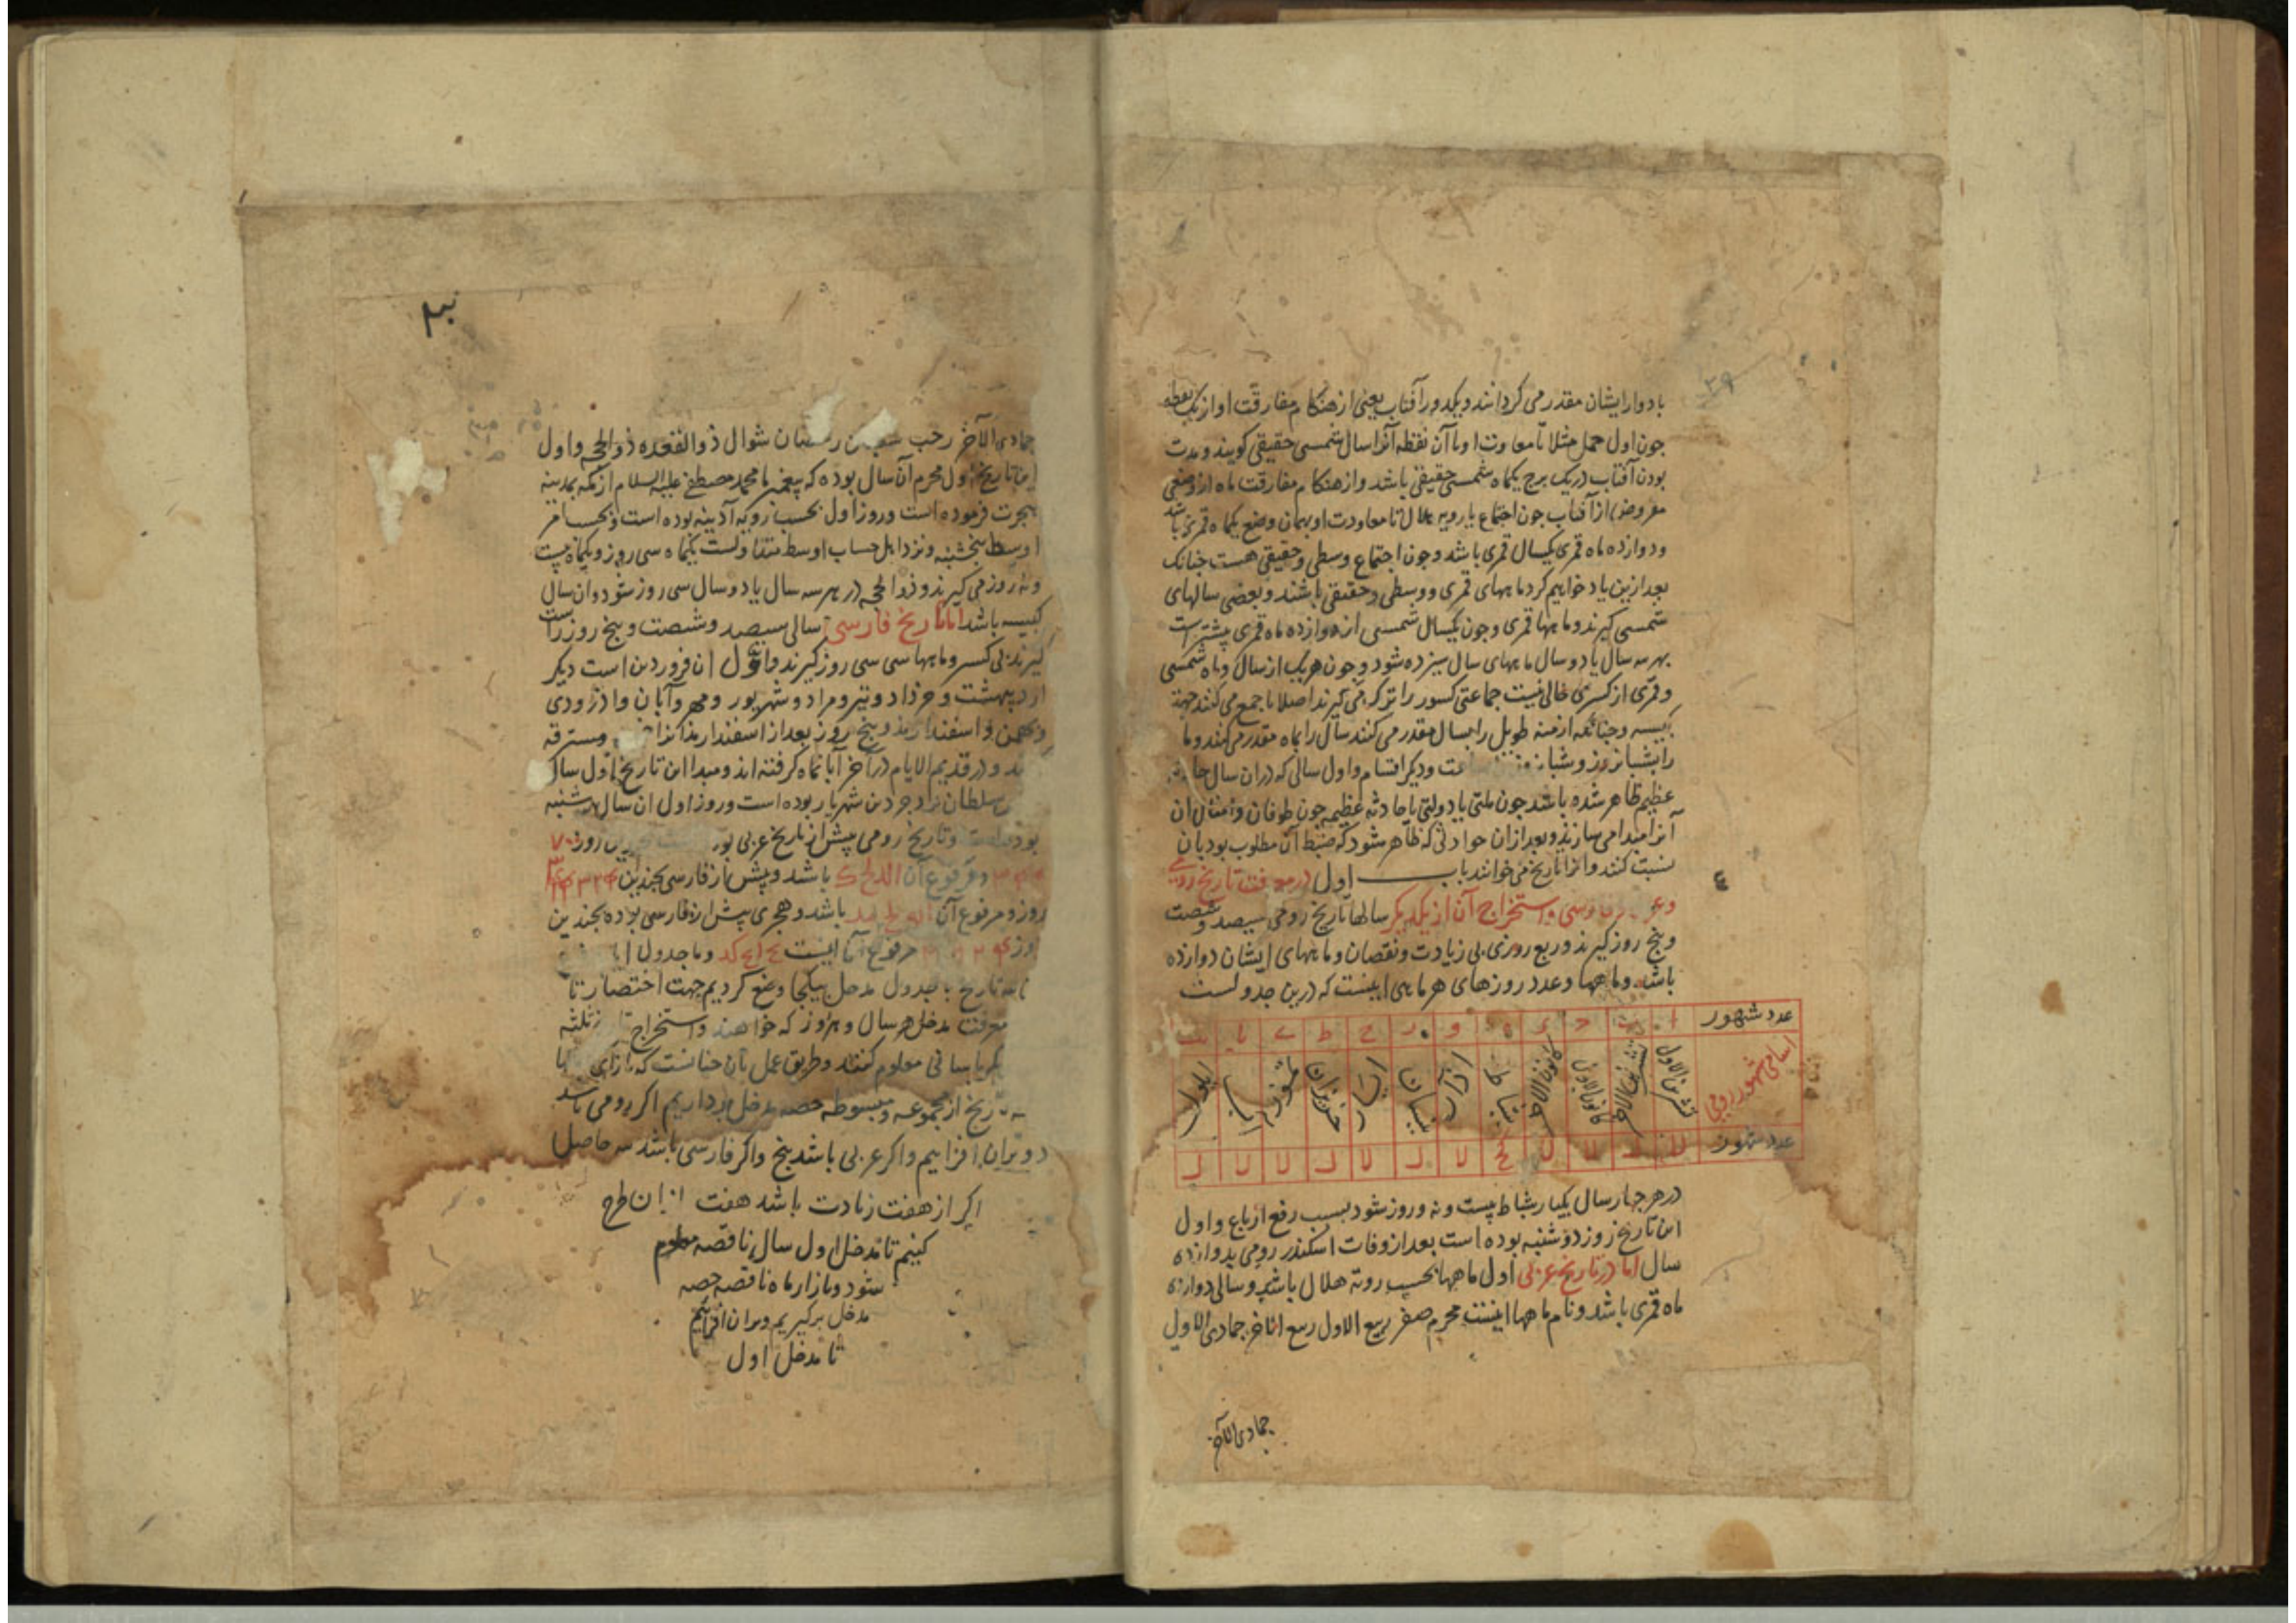 ۳۹
بادوار ایشان مقدر می کردانند و یکدور آفتاب یعنی از هنکام مفارقت او از یک نقطه
جون اول حمل مثلا تا معاودت او با آن نقطه آنرا سال شمسی حقیقی کویند و مدت
بودن آفتاب در یک برج یکماه شمسی حقیقی باشد و از هنکام مفارقت ماه از وضعی
مفروض از آفتاب جون اجتماع یا رویه هلال تا معاودت او بهمان وضع یکماه قمری باشد
و دوازده ماه قمری یکسال قمری باشد و جون اجتماع وسطی و حقیقی هست جنانک
بعد ازین یاد خواهیم کرد ماههای قمری و وسطی و حقیقی باشند و بعضی سالهای
شمسی کیرند و ماهها قمری و جون یکسال شمسی از دوازده ماه قمری بیشترست
بهر سه سال یا دو سال ماههای سال سیزده شود و جون هریک از سال و ماه شمسی
و قمری از کسری خالی نیست جماعتی کسور را ترک می کیرند اصلا یا جمع می کنند جهة
کبیسه و جنانکه ازمنه طویل را بسال مقدر می کنند سال را بماه مقدر می کنند و ماه
را بشبانروز و شبانروز ساعت و دیکر اقسام و اول سالی که در ان سال حادثه
عظیم ظاهر شده باشد جون ملتی یا دولتی یا حادثه عظیم جون طوفان و امثال ان
آنرا مبدا می سازند و بعد ازان حوادثی که ظاهر شود که ضبط آن مطلوب بود بان
نسبت کنند و انرا تاریخ می خوانند باب اول در معرفت تاریخ رومی
و عربی و فارسی و استخراج آن از یکدیکر سالها تاریخ رومی سیصد و شصت
و بنج روز کیرند و ربع روزی بی زیادت و نقصان و ماههای ایشان دوازده
باشد و ماهها و عدد روزهای هر ماهی اینست که درین جدولست
عدد شهور ا ب ج د ه و ز ح ط ی یا یب
اسامی شهور رومی تشرین الاول تشرین الاخر کانون الاول کانون الاخر شباط اذار نیسان ایار حزیران تموز اب ایلول
عدد شهور لا ل لا لا کح لا ل لا ل لا لا ل
در هر جهار سال یکبار شباط بیست و نه روز شود بسبب رفع ارباع و اول
این تاریخ روز دوشنبه بوده است بعد از وفات اسکندر رومی بدوازده
سال اما در تاریخ عربی اول ماهها بحسب رویة هلال باشد و سالی دوازده
ماه قمری باشد و نام ماهها اینست محرم صفر ربیع الاول ربیع الاخر جمادی الاول
جمادی الآخر
جمادی الآخر رجب شعبان رمضان شوال ذو القعده ذو الحجه و اول
این تاریخ اول محرم آن سال بوده که پیغمبر ما محمد مصطفی علیه السلام از مکه بمدینه
هجرت فرموده است و روز اول بحسب رویه آدینه بوده است و بحسب امر
اوسط بنجشنبه و نزد اهل حساب اوسط متداولست یکماه سی روز و یکماه بیست
و نه روز می کیرند و ذو الحجه در هر سه سال یا دو سال سی روز شود و ان سال
کبیسه باشد اما تاریخ فارسی سالی سیصد و شصت و بنج روز راست
کیرند بی کسر و ماهها سی سی روز کیرند و اول ان فروردین است دیکر
اردیبهشت و خرداد و تیر و مرداد و شهریور و مهر و آبان و اذر و دی
و بهمن و اسفندارمذ و بنج روز بعد از اسفندارمذ مسترقه
و در قدیم الایام در آخر آبانماه کرفته اند و مبدا این تاریخ اول سال
سلطان یزدجرد بن شهریار بوده است و روز اول ان سال سه شنبه
بوده است و تاریخ رومی پیش از تاریخ عربی روز
و مرفوع آن باشد و پیش از فارسی بجندین
روز و مرفوع آن باشد و هجری پیش از فارسی بوده بجندین
روز مرفوع آن اینست و ما جدول
تاریخ با جدول مدخل بیکجا وضع کردیم جهت اختصار تا
معرفت مدخل هر سال و هر روز که خواهند و استخراج
باسانی معلوم کنند و طریق عمل بآن جنانست که بازای
تاریخ از مجموعه و مبسوطه حصه مدخل برداریم اکر رومی باشد
دو بران افزاییم و اکر عربی باشد بنج و اکر فارسی باشد سه حاصل
اکر از هفت زیادت باشد هفت ازان طرح
کنیم تا مدخل اول سال ناقصه معلوم
شود و بازار ماه ناقصه حصه
مدخل برکیریم و بران افزاییم
تا مدخل اول